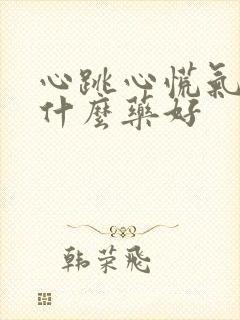 心跳心慌氣
什麼藥好
韩荣飛